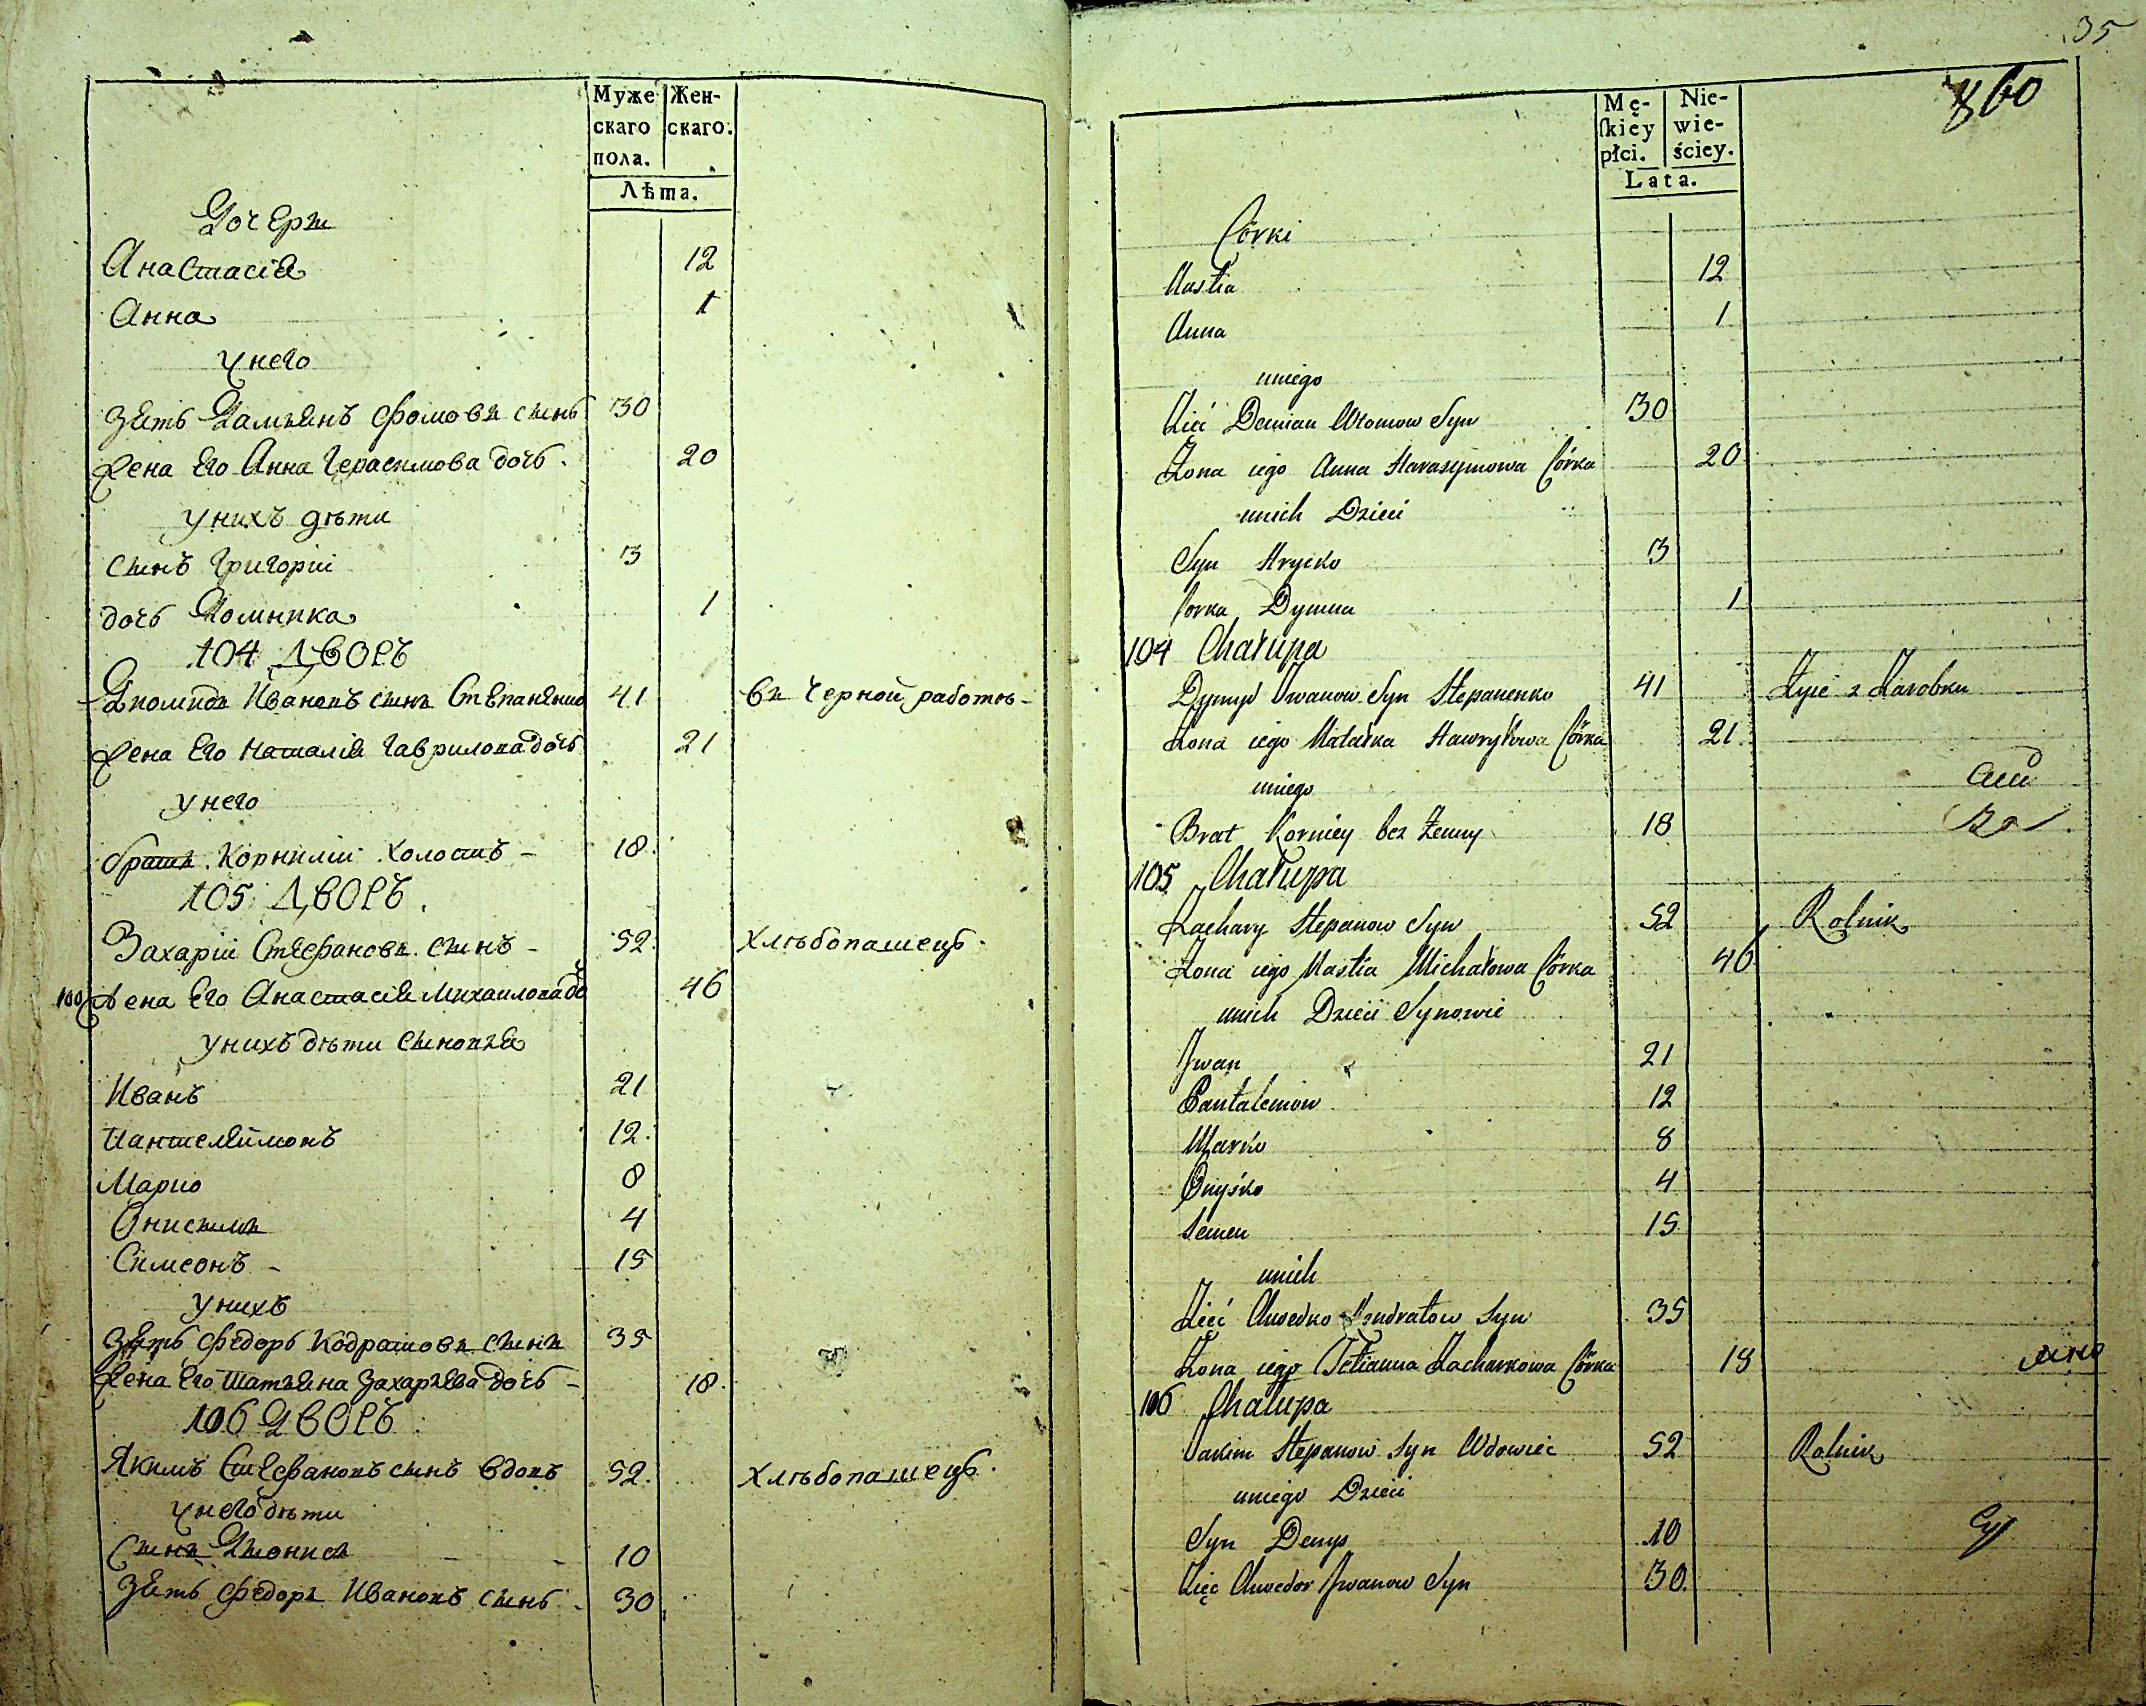 Муже Жен-
скаго скаго.
пола.
Лѣта.
Дочери
Анастасія 12
Анна 1
у него
зять Дамьянъ Фомовъ сынъ 30
жена Его Анна Герасимова дочь. 20
у нихъ дѣти
сынъ Григорій 3
дочь Домникa 1
104 ДВОРЪ
Диомидъ Ивановъ сынъ Степаненко 41 въ черной работѣ -
жена Его Наталія Гаврилова дочь 21
у него
братъ Корнилій Холостъ - 18.
105 ДВОРЪ.
Захарій Стефановъ сынъ - 52. Хлѣбопашецъ.
100 жена Его Анастасія Михаилова до 46
у нихъ дѣти сыновья
Иванъ 21
Пантелеймонъ 12.
Марко 8
Онисимъ 4
Симеонъ - 15
у нихъ
зять Федоръ Кодратовъ сынъ 35
жена Его Татьяна Захарьева дочь - 18.
106 ДВОРЪ
Якимъ Стефановъ сынъ вдовъ 52. Хлѣбопашецъ.
у него дѣти
Сынъ Дионисъ 10
Зять Федоръ Ивановъ сынъ - 30
35
860
Mę- Nie-
skiey wie-
płci. ściey.
Lata.
Córki
Nastia 12
Anna 1
uniego
Zięć Demian Chomow Syn 30
Żona iego Anna Harasymowa Córka 20
unich Dzieci
Syn Hrycko 3
Corka Dymna 1
104 Chałupa
Dymyd Iwanow Syn Stepanenko 41 Żyie z Zarobku
Żona iego Natałka Hawryłowa Córka 21.
uniego
Brat Korniey bez Żenny 18
105 Chałupa
Zachary Stepanow Syn 52 Rolnik
Żona iego Nastia Michałowa Córka 46
unich Dzieci Synowie
Iwan 21
Pantalemon 12
Marko 8
Onyśko 4
Semen 15
unich
Zięć Chwedko Kondratow Syn 35
Żona iego Tetianna Zacharkowa Córka 18
106 Chałupa
Jakim Stepanow Syn Wdowiec 52 Rolnik
uniego Dzieci
Syn Denys 10
Zięc Chwedor Iwanow Syn 30.